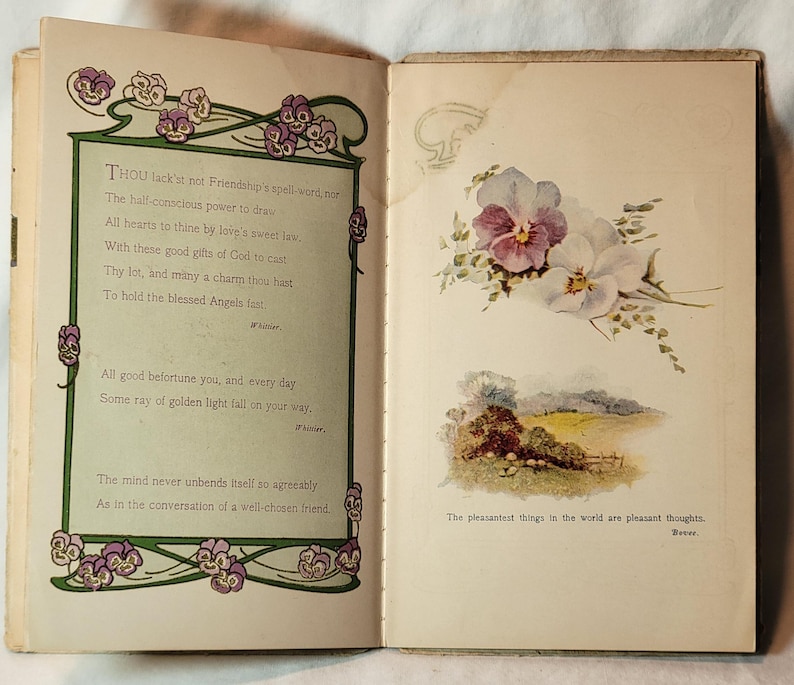 THOU lack'st not Friendship's spell-word, nor
The half-conscious power to draw
All hearts to thine by love's sweet law.
With these good gifts of God to cast
Thy lot, and many a charm thou hast
To hold the blessed Angels fast.
Whittier.
All good befortune you, and every day
Some ray of golden light fall on your way.
Whittier.
The mind never unbends itself so agreeably
As in the conversation of a well-chosen friend.
The pleasantest things in the world are pleasant thoughts.
Bovee.